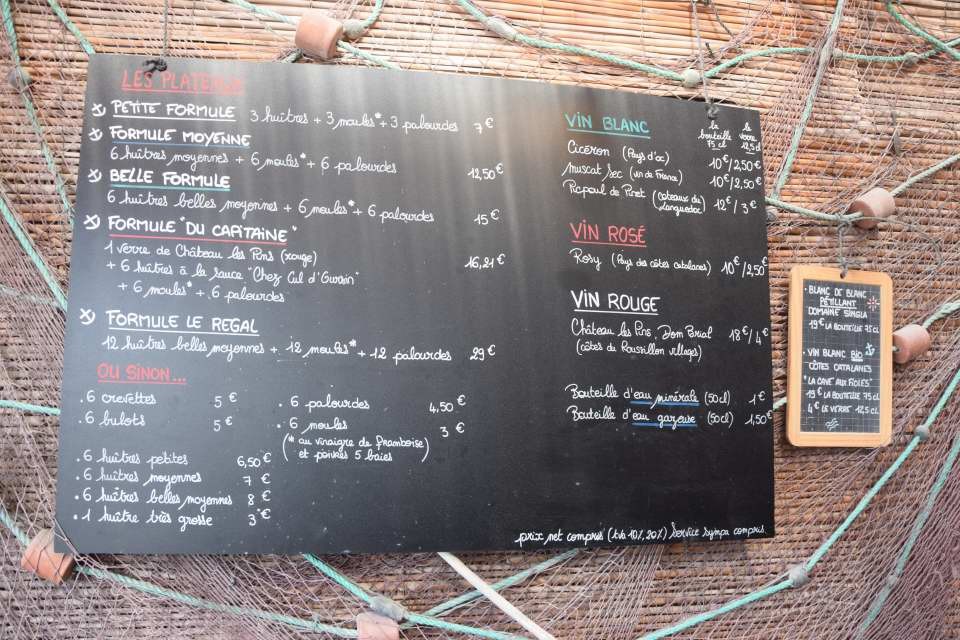 LES PLATEAUX
PETITE FORMULE 3 huîtres + 3 moules* + 3 palourdes 7 €
FORMULE MOYENNE
6 huîtres moyennes + 6 moules* + 6 palourdes 12,50 €
BELLE FORMULE
6 huîtres belles moyennes + 6 moules* + 6 palourdes 15 €
FORMULE "DU CAPITAINE"
1 verre de Château les Pins (rouge) 16,21 €
+ 6 huîtres à la sauce "Chez Cul d'Gurain"
+ 6 moules* + 6 palourdes
FORMULE LE REGAL
12 huîtres belles moyennes + 12 moules* + 12 palourdes 29 €
OU SINON...
. 6 crevettes 5 €
. 6 bulots 5 €
. 6 huîtres petites 6,50 €
. 6 huîtres moyennes 7 €
. 6 huîtres belles moyennes 8 €
. 1 huître très grosse 3 €
. 6 palourdes 4,50 €
. 6 moules 3 €
(* au vinaigre de framboise
et poivres 5 baies)
VIN BLANC
la bouteille 75 cl
le verre 12,5 cl
Cicéron (Pays d'oc) 10 € / 2,50 €
Muscat Sec (vin de France) 10 € / 2,50 €
Picpoul de Pinet (coteaux du Languedoc) 12 € / 3 €
VIN ROSÉ
Rosy (Pays des côtes catalanes) 10 € / 2,50 €
VIN ROUGE
Château les Pins, Dom Brial 18 € / 4 €
(côtes du Roussillon villages)
Bouteille d'eau minérale (50cl) 1 €
Bouteille d'eau gazeuse (50cl) 1,50 €
prix net compris (tva 10%, 20%) Service sympa compris
. BLANC DE BLANC
PÉTILLANT
DOMAINE SINGLA
19 € LA BOUTEILLE 75 cl
. VIN BLANC BIO
CÔTES CATALANES
"LA CAVE AUX FIOLES"
19 € LA BOUTEILLE 75 cl
4 € LE VERRE 12,5 CL